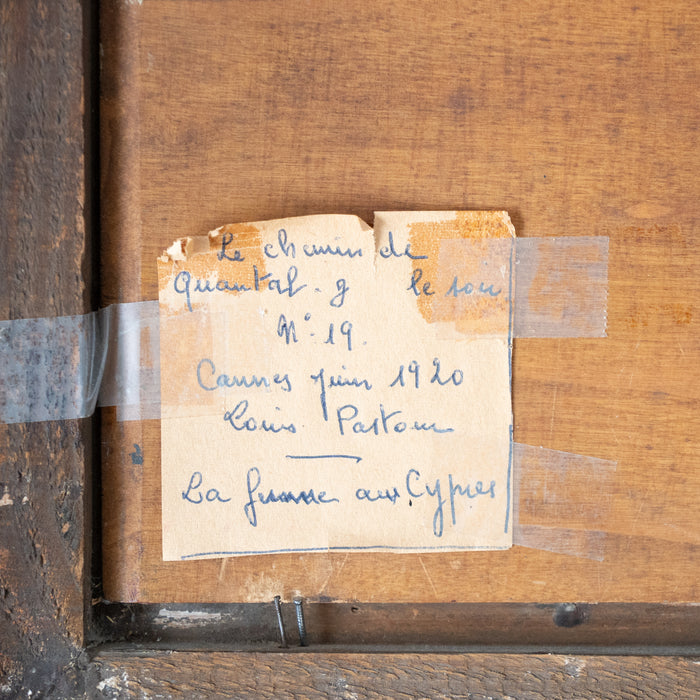 Le chemin de
le soir
N° 19.
Cannes juin 1920
Louis Pastour
La femme aux Cyprès